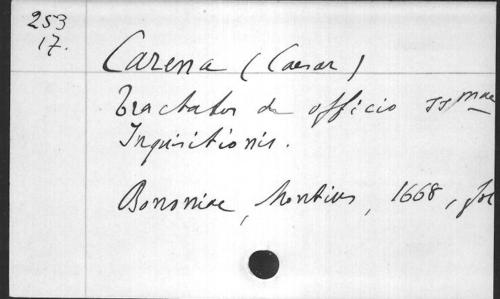 253
17.
Carena (Caesar)
Tractatus de officio SSmae
Inquisitionis.
Bononiae, Montius, 1668, fol